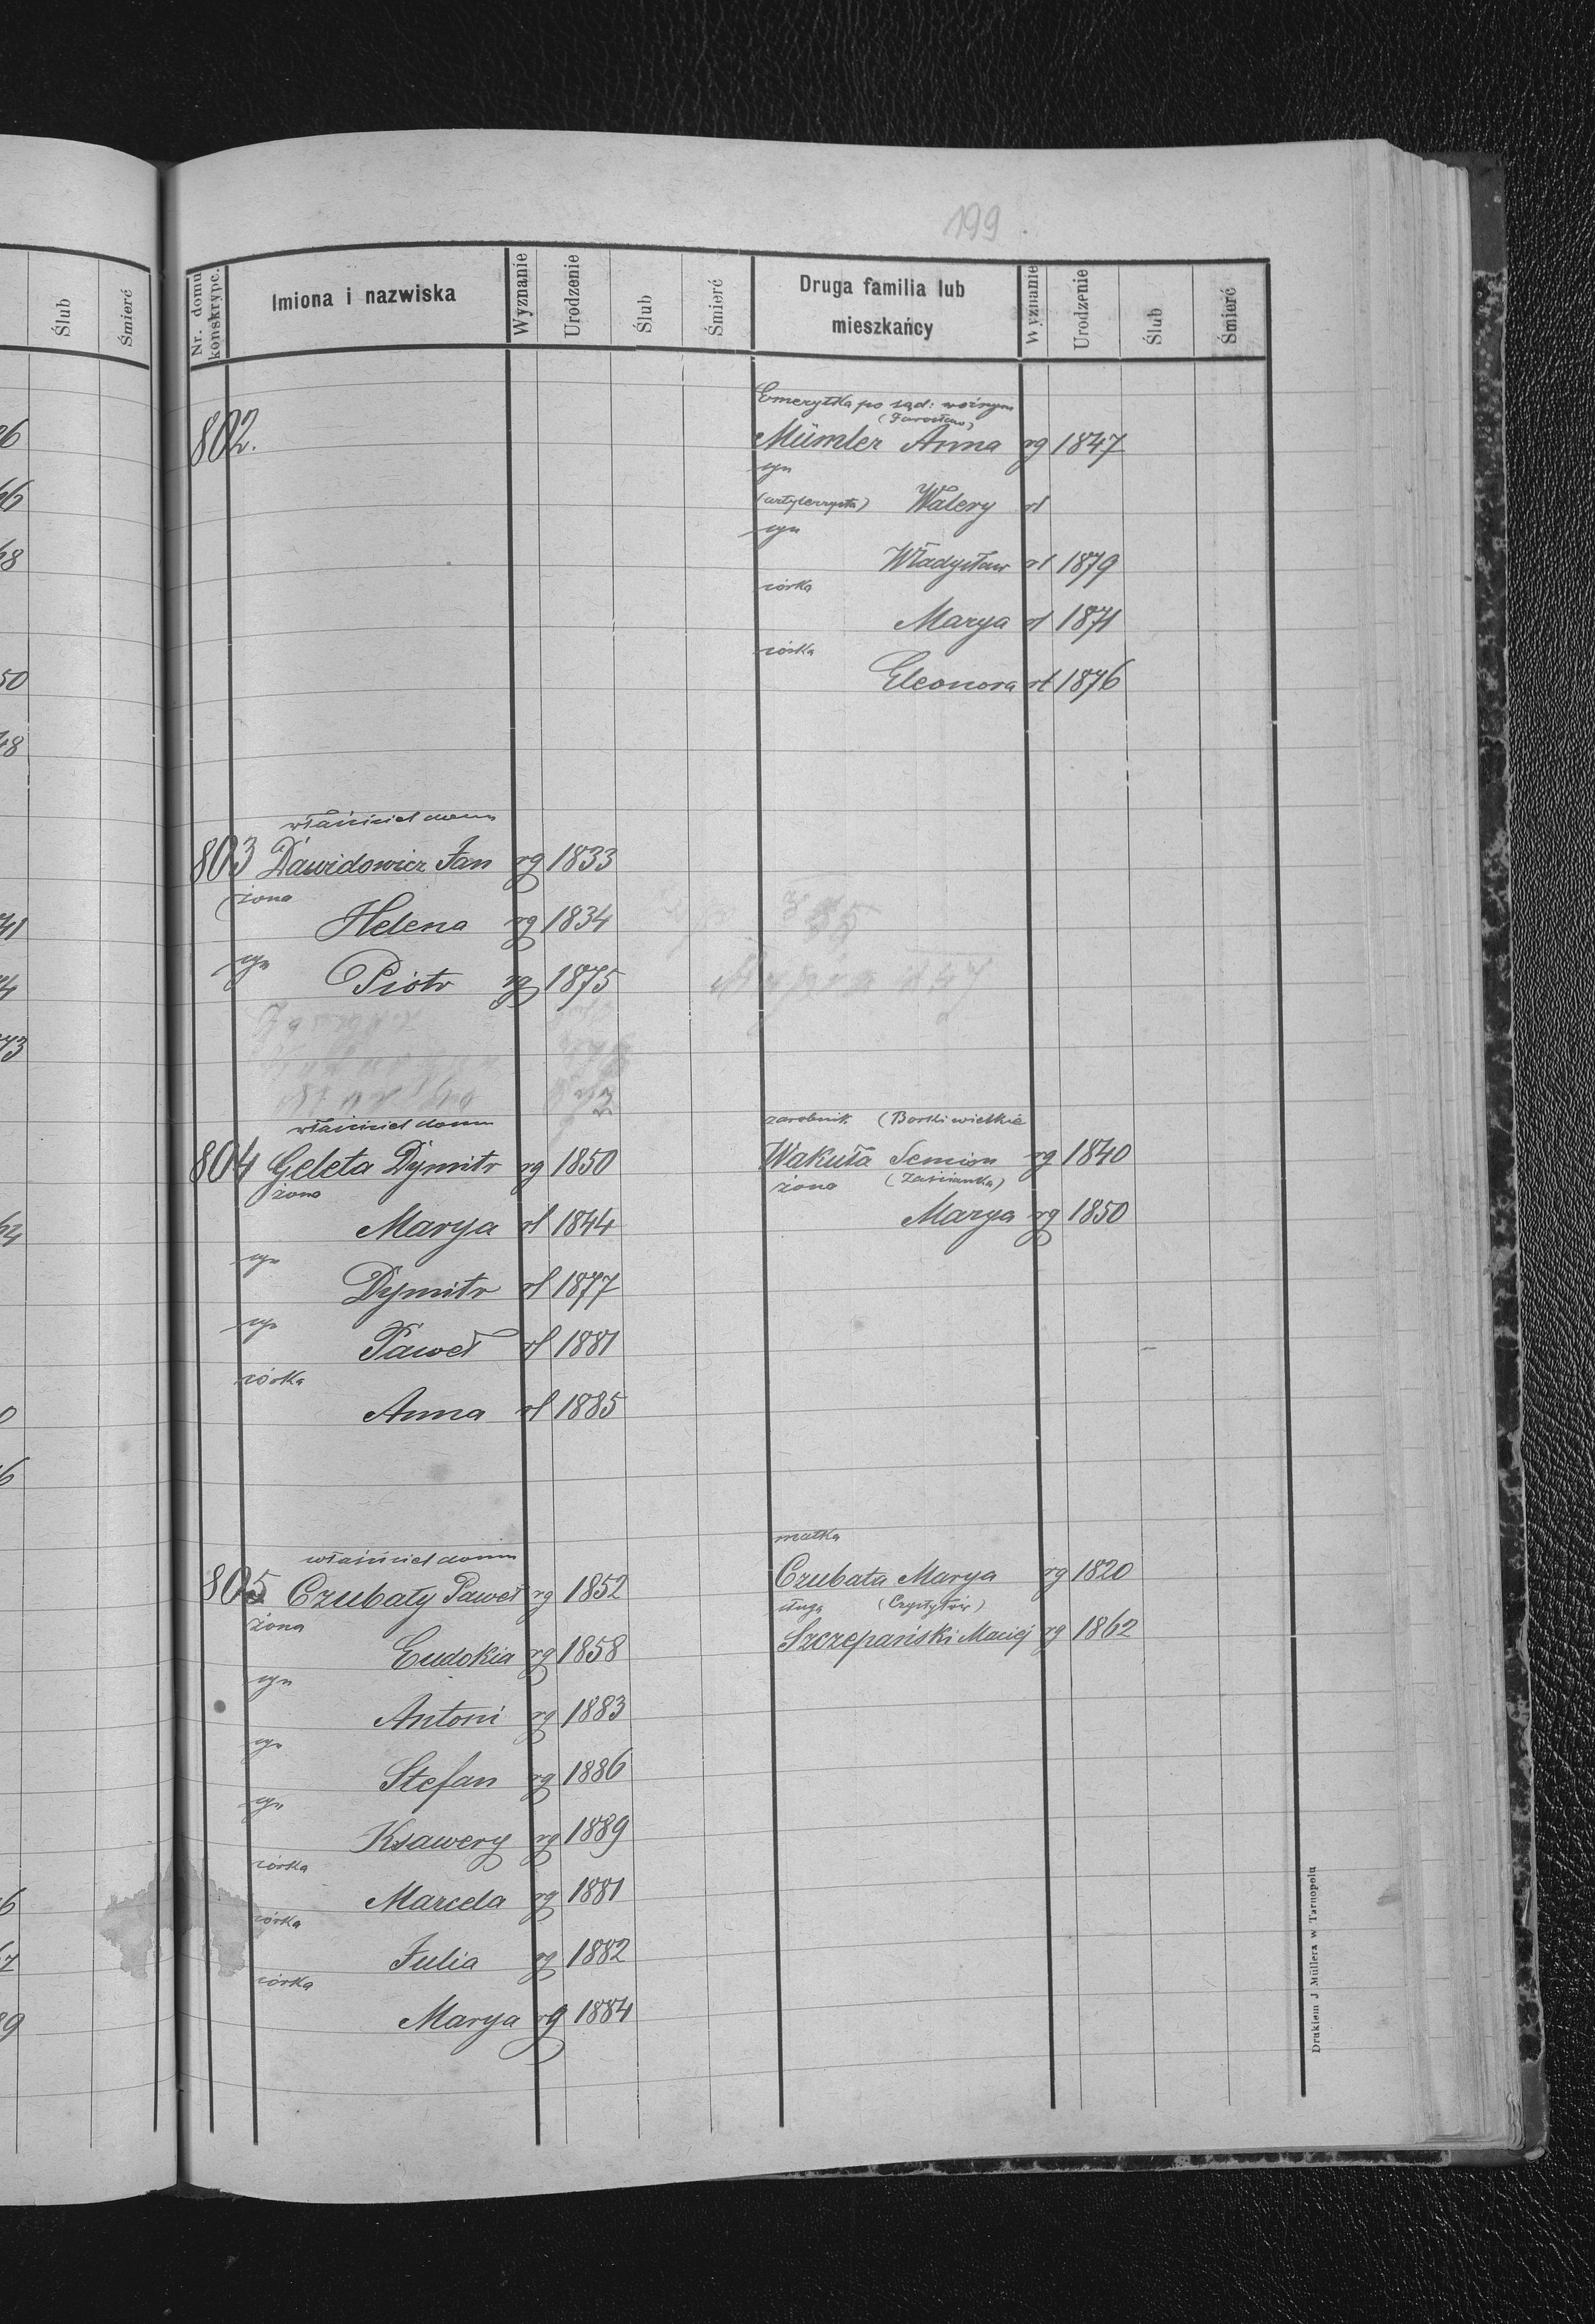 199
Ślub
Śmierć
Nr. domu konskrypc.
Imiona i nazwiska
Wyznanie
Urodzenie
Ślub
Śmierć
Druga familia lub mieszkańcy
Wyznanie
Urodzenie
Ślub
Śmierć
802.
Emerytka po sąd: woźnym
(Jarosław)
Mümler Anna rg 1847
syn
(artylerzysta) Walery rł
syn
Władysław rł 1879
córka
Marya rł 1871
córka
Eleonora rł 1876
właściciel domu
803 Dawidowicz Jan rg 1833
żona
Helena rg 1834
syn
Piotr rg 1875
właściciel domu
804 Geleta Dymitr rg 1850
żona
Marya rł 1844
syn
Dymitr rł 1877
syn
Paweł rł 1881
córka
Anna rł 1885
zarobnik (Borki wielkie
Wakuła Semion rg 1840
żona (Zaścianka)
Marya rg 1850
właściciel domu
805 Czubaty Paweł rg 1852
żona
Eudokia rg 1858
syn
Antoni rg 1883
syn
Stefan rg 1886
syn
Ksawery rg 1889
córka
Marcela rg 1881
córka
Julia rg 1882
córka
Marya rg 1884
matka
Czubata Marya rg 1820
sługa
Szczepański Maciej rg 1862
Drukiem J. Müllera w Tarnopolu